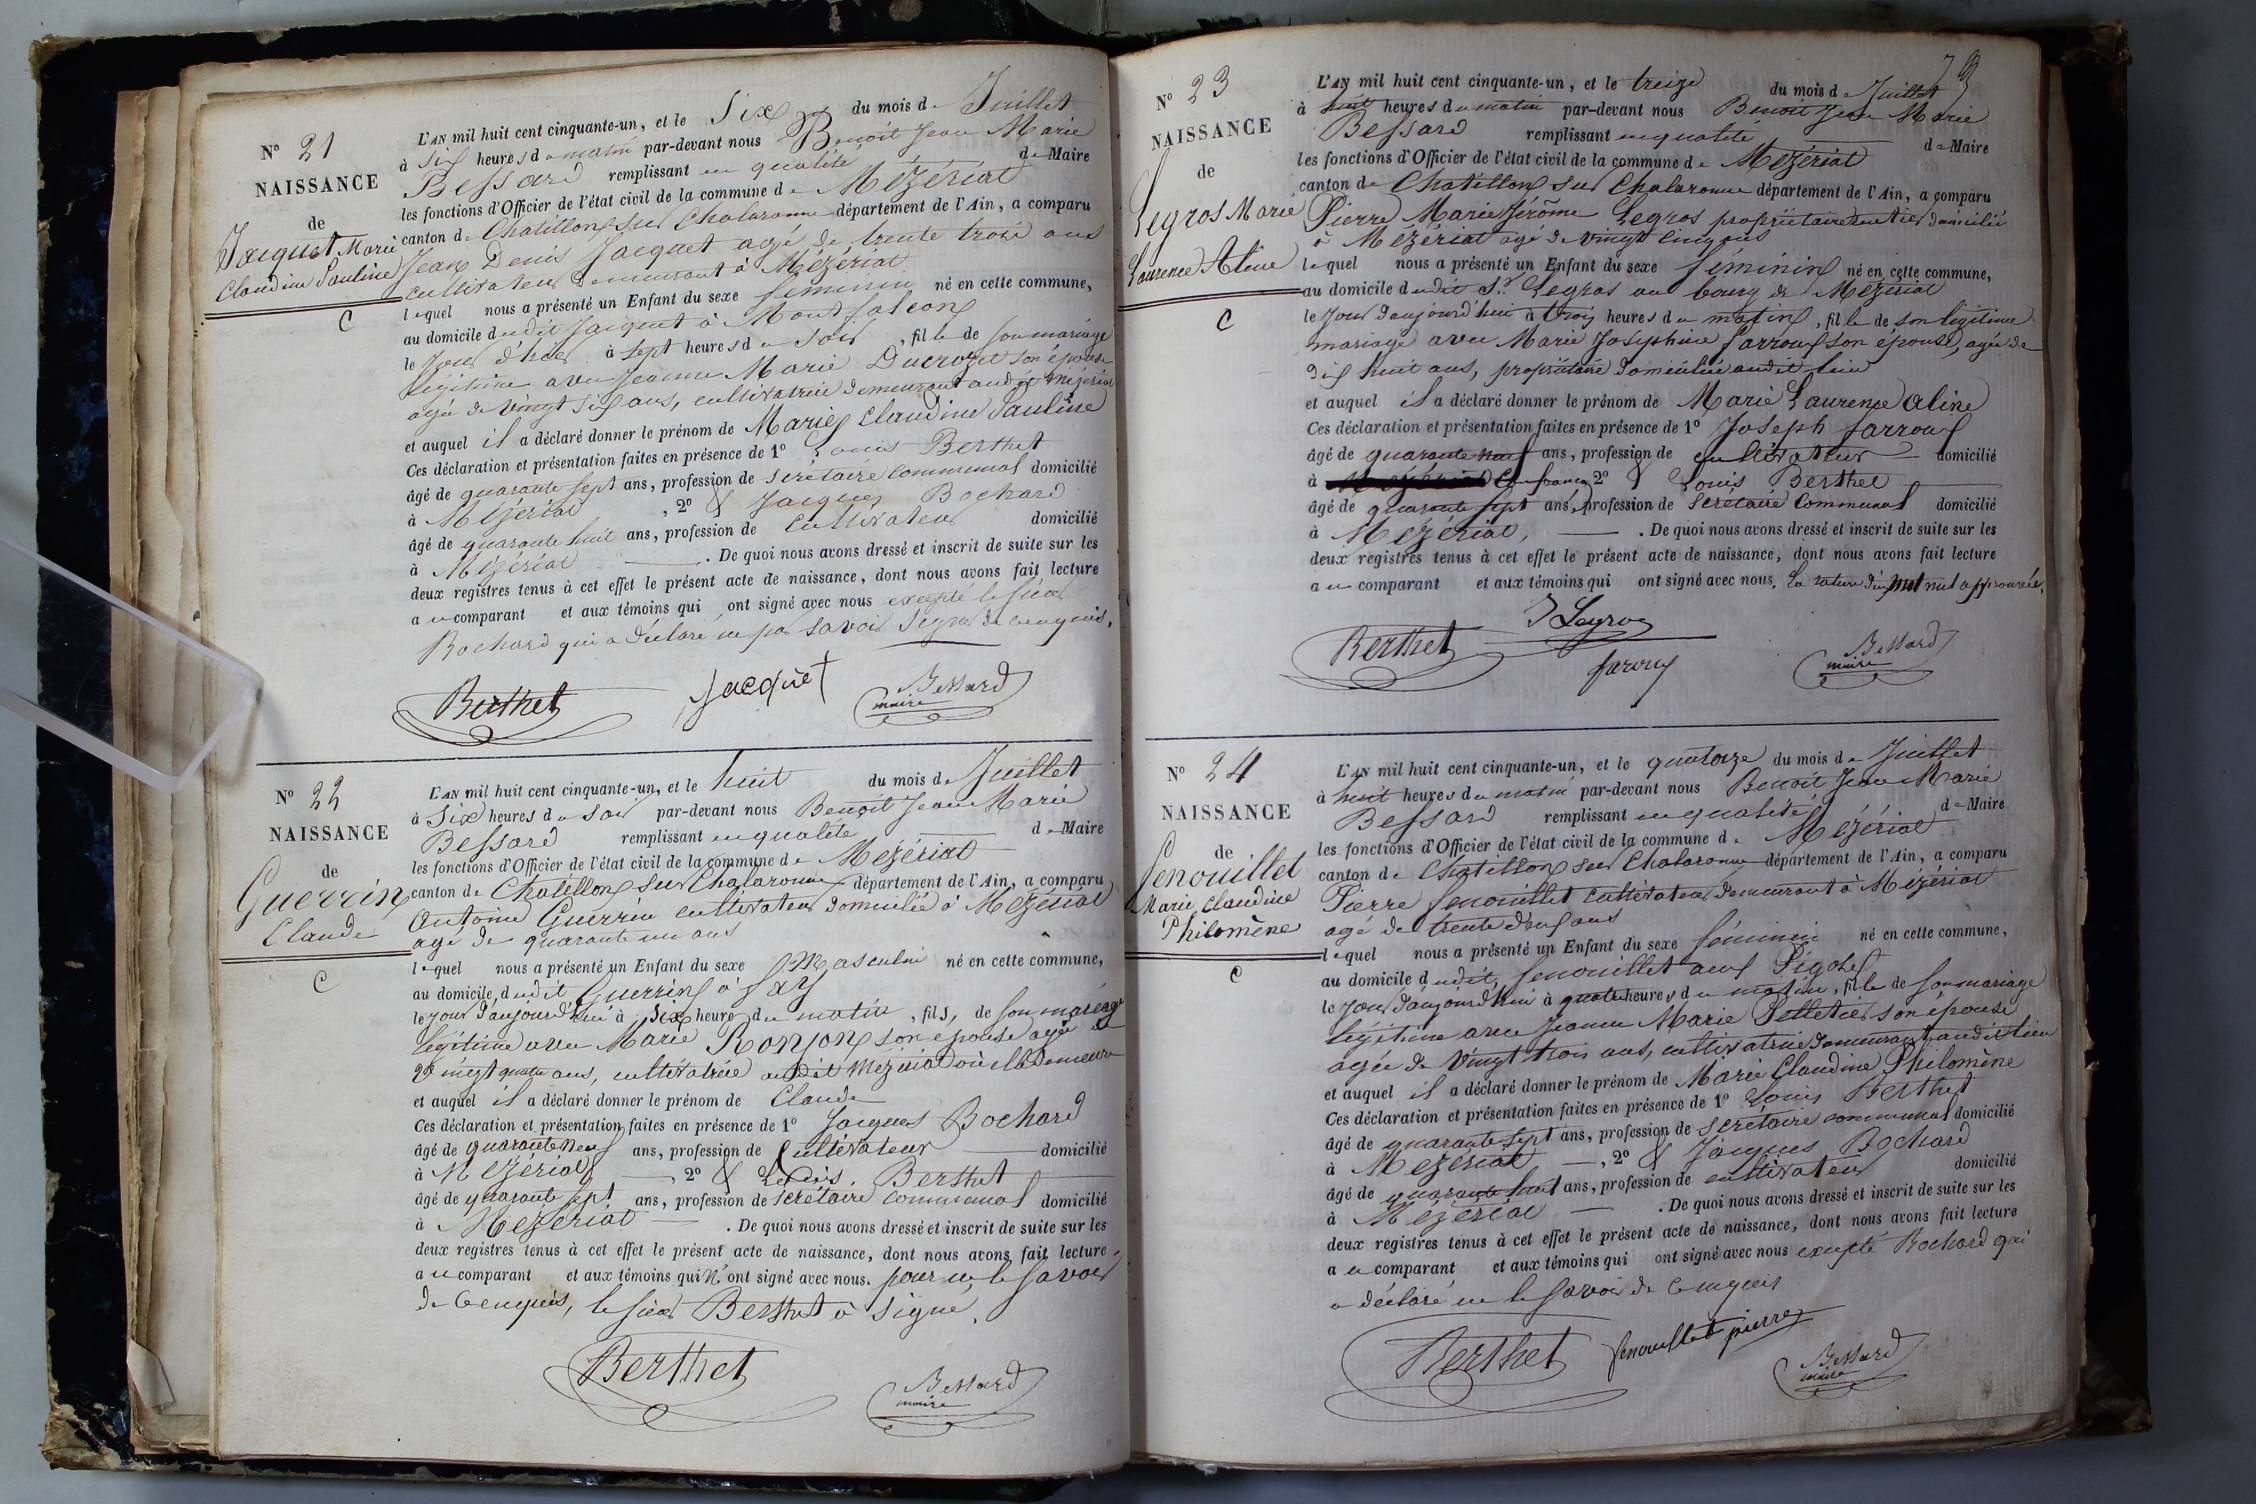 N° 21
NAISSANCE
de
Jacquet Marie
Claudine Pauline
C
L'AN mil huit cent cinquante-un, et le Six du mois de Juillet
à Six heures du matin par-devant nous Benoit Jean Marie
Bessard remplissant en qualité de Maire
les fonctions d'Officier de l'état civil de la commune de Mézériat
canton de Chatillon sur Chalaronne département de l'Ain, a comparu
Jean Denis Jacquet agé de trente trois ans
cultivateur demeurant à Mézériat
lequel nous a présenté un Enfant du sexe féminin né en cette commune,
au domicile dudit Jacquet à Montfalcon
le jour d'hier à sept heures du soir, fille de son mariage
légitime avec Jeanne Marie Ducrozet son épouse
agée de vingt six ans, cultivatrice demeurant audit Mézériat
et auquel il a déclaré donner le prénom de Marie Claudine Pauline
Ces déclaration et présentation faites en présence de 1° Louis Berthet
âgé de quarante sept ans, profession de Secrétaire communal domicilié
à Mézériat, 2° & Jacques Bochard
âgé de quarante huit ans, profession de Cultivateur domicilié
à Mézériat. De quoi nous avons dressé et inscrit de suite sur les
deux registres tenus à cet effet le présent acte de naissance, dont nous avons fait lecture
au comparant et aux témoins qui ont signé avec nous excepté le sieur
Bochard qui a déclaré ne pas savoir signer de ce enquis.
Berthet Jacquet Bessard
maire
N° 22
NAISSANCE
de
Guerrin
Claude
C
L'AN mil huit cent cinquante-un, et le huit du mois de Juillet
à Six heures du soir par-devant nous Benoit Jean Marie
Bessard remplissant en qualité de Maire
les fonctions d'Officier de l'état civil de la commune de Mézériat
canton de Chatillon sur Chalaronne département de l'Ain, a comparu
Antoine Guerrin cultivateur domicilié à Mézériat
agé de quarante un ans
lequel nous a présenté un Enfant du sexe Masculin né en cette commune,
au domicile dudit Guerrin à Fay
le jour d'aujourd'hui à six heures du matin, fils, de son mariage
légitime avec Marie Ronjon son épouse agée de
vingt quatre ans, cultivatrice audit Mézériat où elle demeure
et auquel il a déclaré donner le prénom de Claude
Ces déclaration et présentation faites en présence de 1° Jacques Bochard
âgé de quarante neuf ans, profession de Cultivateur domicilié
à Mézériat, 2° & Louis Berthet
âgé de quarante sept ans, profession de Secrétaire communal domicilié
à Mézériat. De quoi nous avons dressé et inscrit de suite sur les
deux registres tenus à cet effet le présent acte de naissance, dont nous avons fait lecture
au comparant et aux témoins qui N'ont signé avec nous. pour ne le savoir
de ce enquis, le sieur Berthet a signé.
Berthet Bessard
maire
73
N° 23
NAISSANCE
de
Legros Marie
Laurence Aline
C
L'AN mil huit cent cinquante-un, et le treize du mois de Juillet
à huit heures du matin par-devant nous Benoit Jean Marie
Bessard remplissant en qualité de Maire
les fonctions d'Officier de l'état civil de la commune de Mézériat
canton de Chatillon sur Chalaronne département de l'Ain, a comparu
Pierre Marie Jérôme Legros propriétaire rentier domicilié
à Mézériat agé de vingt cinq ans
lequel nous a présenté un Enfant du sexe féminin né en cette commune,
au domicile dudit Sr Legros au bourg de Mézériat
le jour d'aujourd'hui à trois heures du matin, fille de son légitime
mariage avec Marie Joséphine Farroux son épouse, agée de
dix huit ans, propriétaire domiciliée audit lieu
et auquel il a déclaré donner le prénom de Marie Laurence Aline
Ces déclaration et présentation faites en présence de 1° Joseph Farroux
âgé de quarante neuf ans, profession de cultivateur domicilié
à Confrançon 2° & Louis Berthet
âgé de quarante sept ans, profession de Secrétaire Communal domicilié
à Mézériat. De quoi nous avons dressé et inscrit de suite sur les
deux registres tenus à cet effet le présent acte de naissance, dont nous avons fait lecture
au comparant et aux témoins qui ont signé avec nous. La rature d'un mot nul approuvée.
Berthet J Legros
Faroux Bessard
maire
N° 24
NAISSANCE
de
Fenouillet
Marie Claudine
Philomène
C
L'AN mil huit cent cinquante-un, et le quatorze du mois de Juillet
à huit heures du matin par-devant nous Benoit Jean Marie
Bessard remplissant en qualité de Maire
les fonctions d'Officier de l'état civil de la commune de Mézériat
canton de Chatillon sur Chalaronne département de l'Ain, a comparu
Pierre Fenouillet cultivateur demeurant à Mézériat
agé de trente deux ans
lequel nous a présenté un Enfant du sexe féminin né en cette commune,
au domicile dudit Fenouillet aux Pigots
le jour d'aujourd'hui à quatre heures du matin, fille de son mariage
légitime avec Jeanne Marie Pelletier son épouse
agée de vingt trois ans, cultivatrice demeurant audit lieu
et auquel il a déclaré donner le prénom de Marie Claudine Philomène
Ces déclaration et présentation faites en présence de 1° Louis Berthet
âgé de quarante sept ans, profession de secrétaire communal domicilié
à Mézériat, 2° & Jacques Bochard
âgé de quarante huit ans, profession de cultivateur domicilié
à Mézériat. De quoi nous avons dressé et inscrit de suite sur les
deux registres tenus à cet effet le présent acte de naissance, dont nous avons fait lecture
au comparant et aux témoins qui ont signé avec nous excepté Bochard qui
a déclaré ne le savoir de ce enquis
Berthet fenouillet pierre Bessard
maire